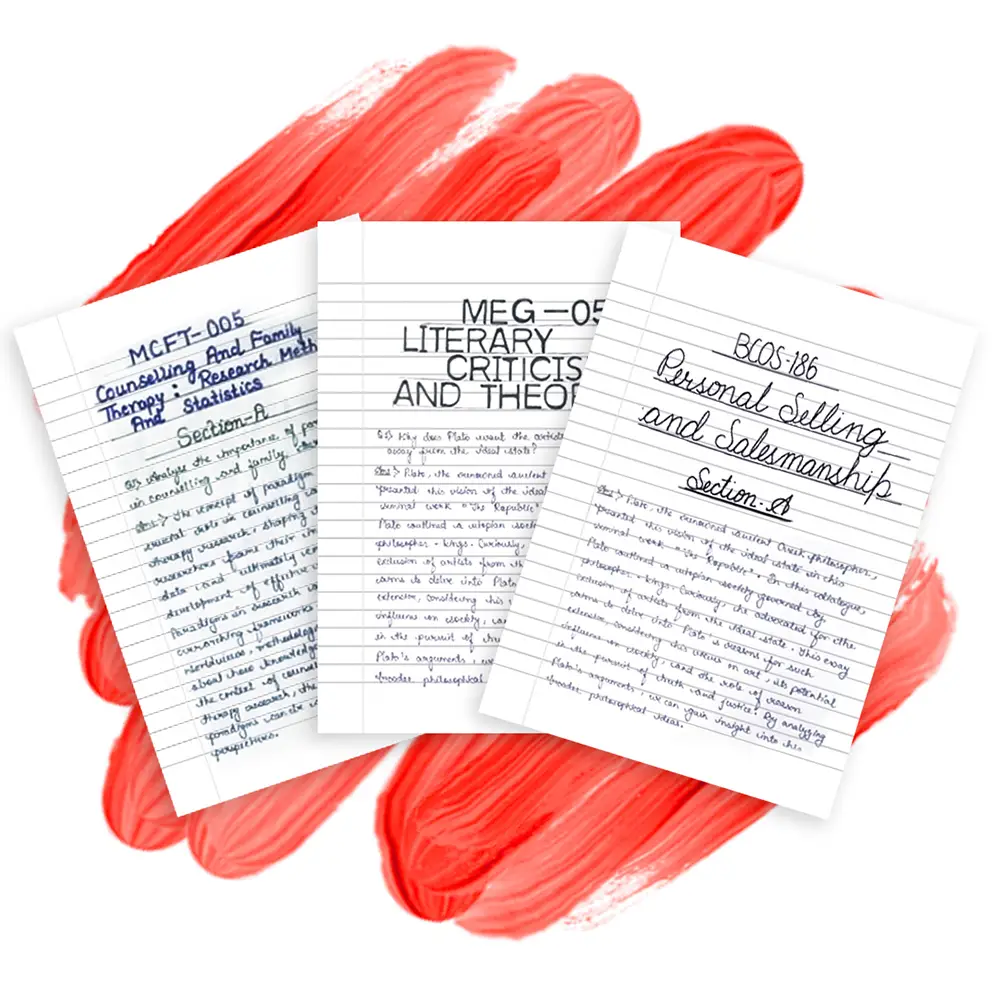 MCFT-005
Counselling And Family
Therapy : Research Meth
And Statistics
Section-A
Q1) Analyse the importance of par
in counselling and family
Ans:> The concept of paradigm
crucial role in counselling
therapy research, shaping
researchers frame their
data and ultimately
development of effective
Paradigms in research
overarching frameworks
worldviews, methodology
about how knowledge
the context of counsel
therapy research, the
paradigms can be
perspective.
MEG-05
LITERARY
CRITICIS
AND THEO
Q1) Why does Plato want the artists
away from the ideal state?
Ans:> Plato, the renowned ancient
presented his vision of the ideal
seminal work "The Republic"
Plato outlined a utopian soci
philosopher-kings. Curiously,
exclusion of artists from th
aims to delve into Plato
extensive, considering his
influence on society,
in the pursuit of tru
Plato's arguments,
broader philosophical
BCOS-186
Personal Selling
and Salesmanship
Section-A
Ans:> Plato, the renowned ancient Greek philosopher,
presented his vision of the ideal state in his
seminal work "The Republic". In this dialogue,
Plato outlined a utopian society governed by
philosopher-kings. Curiously, he advocated for the
exclusion of artists from the ideal state. This essay
aims to delve into Plato's reasons for such
extensive, considering his views on art, its potential
influence on society, and the role of reason
in the pursuit of truth and justice. By analyzing
Plato's arguments, we can gain insight into his
broader philosophical ideas.